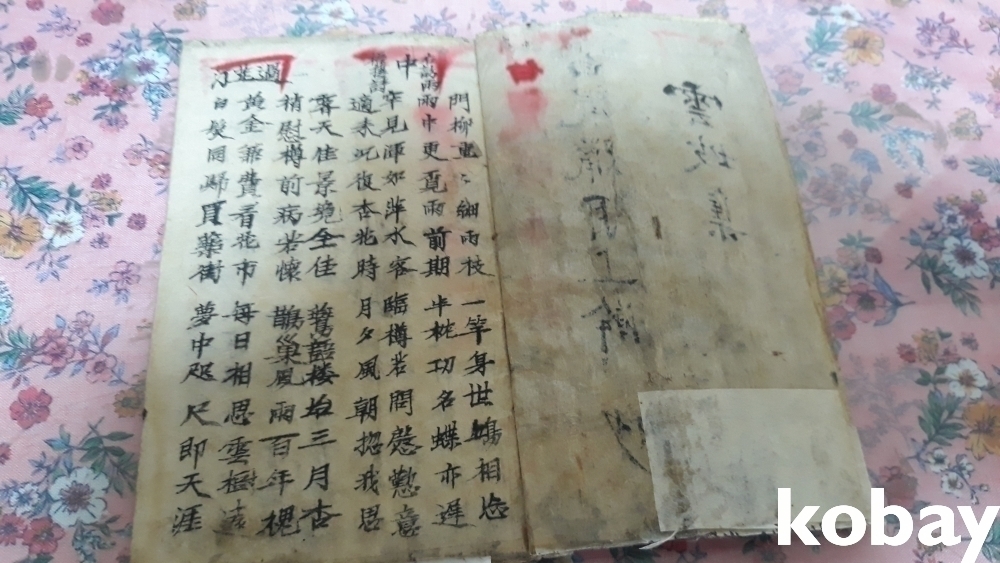 雲集
臘月上澣
門柳重〻細雨枝 一竿身世鷗相
雨中更覔雨前期 半枕功名蝶亦遲
中
乍見渾如萍水客 臨樽若問慇懃意
適來況復杏花時 月夕風朝揔我思
霽天佳景絶全佳 樓三月杏
稍慰樽前病若懷 鵲巢風雨百年槐
過
黃金費看花市 每日相思雲樹遠
白髮同歸買藥街 夢中咫尺即天涯
kobay